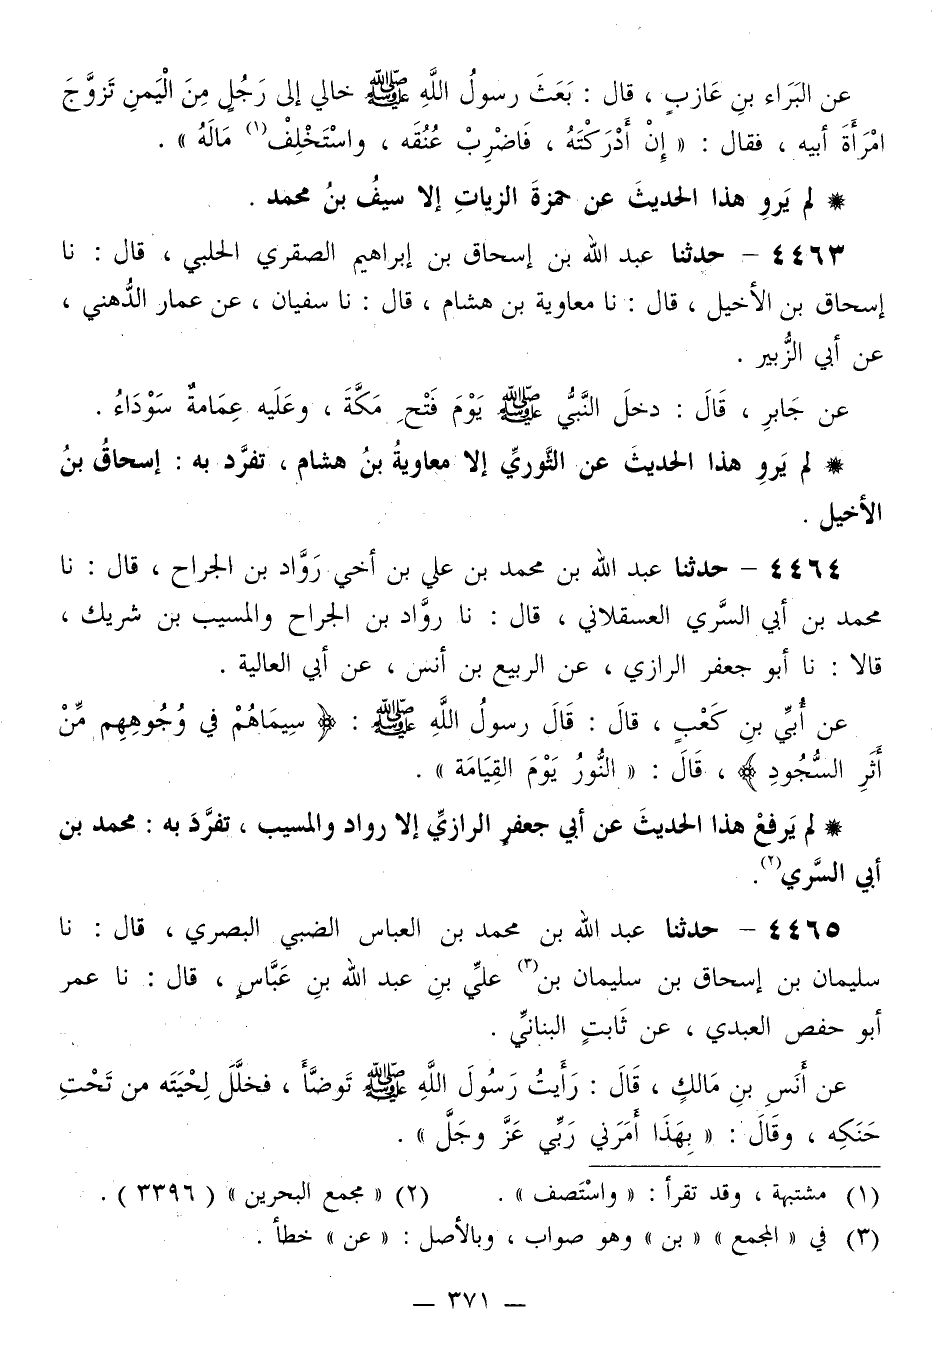 عن البَرَاء بنِ عَازبٍ ، قال : بَعَثَ رسولُ اللَّهِ ﷺ خالي إلى رَجُلٍ مِنَ الْيَمنِ تَزوَّجَ
امْرَأَةَ أبيه ، فقال : « إِنْ أَدْرَكْتَهُ ، فَاضْرِبْ عُنُقَه ، واسْتَخْلِفْ(١) مَالَهُ » .
* لم يَروِ هذا الحديثَ عن حمزةَ الزياتِ إلا سيفُ بنُ محمد .
٤٤٦٣ – حدثنا عبد الله بن إسحاق بن إبراهيم الصقري الحلبي ، قال : نا
إسحاق بن الأخيل ، قال : نا معاوية بن هشام ، قال : نا سفيان ، عن عمار الدُّهني ،
عن أبي الزُّبير .
عن جَابرِ ، قَالَ : دخلَ النَّبيُّ ﷺ يَوْمَ فَتْحِ مَكَّةَ ، وعلَيه عِمَامةٌ سَوْدَاءُ .
* لم يَروِ هذا الحديثَ عن الثَّوريِّ إلا معاويةُ بنُ هشام ، تفرَّد به : إسحاقُ بنُ
الأخيل .
٤٤٦٤ – حدثنا عبد الله بن محمد بن علي بن أخي رَوَّاد بن الجراح ، قال : نا
محمد بن أبي السَّري العسقلاني ، قال : نا روَّاد بن الجراح والمسيب بن شريك ،
قالا : نا أبو جعفر الرازي ، عن الربيع بن أنس ، عن أبي العالية .
عن أُبيِّ بنِ كَعْبٍ ، قالَ : قَالَ رسولُ اللَّهِ ﷺ : ﴿ سِيمَاهُمْ في وُجُوهِهِم مِّنْ
أَثَرِ السُّجُودِ ﴾ ، قَالَ : « النُّورُ يَوْمَ القِيَامَة » .
* لم يَرفعْ هذا الحديثَ عن أبي جعفرٍ الرازيِّ إلا رواد والمسيب ، تفرَّدَ به : محمد بن
أبي السَّري(٢).
٤٤٦٥ – حدثنا عبد الله بن محمد بن العباس الضبي البصري ، قال : نا
سليمان بن إسحاق بن سليمان بن(٣) عليِّ بنِ عبد الله بنِ عَبَّاسٍ ، قال : نا عمر
أبو حفص العبدي ، عن ثَابتٍ البنانيِّ .
عن أَنَسِ بنِ مَالكٍ ، قَالَ : رَأَيتُ رَسُولَ اللَّهِ ﷺ تَوضَّأَ ، فخلَّلَ لِحْيَتَه من تَحْتِ
حَنَكِه ، وقَالَ : « بِهَذَا أَمَرَني رَبِّي عَزَّ وجَلَّ » .
(١) مشتبهة ، وقد تقرأ : « واسْتَصف » . (٢) « مجمع البحرين » ( ٣٣٩٦ ) .
(٣) في « المجمع » « بن » وهو صواب ، وبالأصل : « عن » خطأ .
– ٣٧١ –